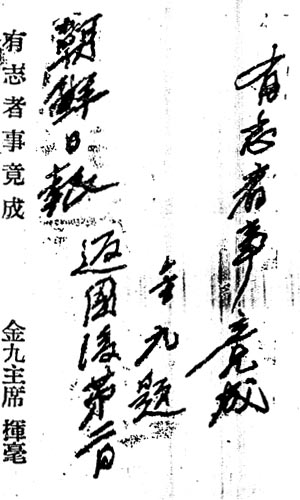 有志者事竟成
金九題
朝鮮日報 返國後第二日
有志者事竟成 金九主席 揮毫